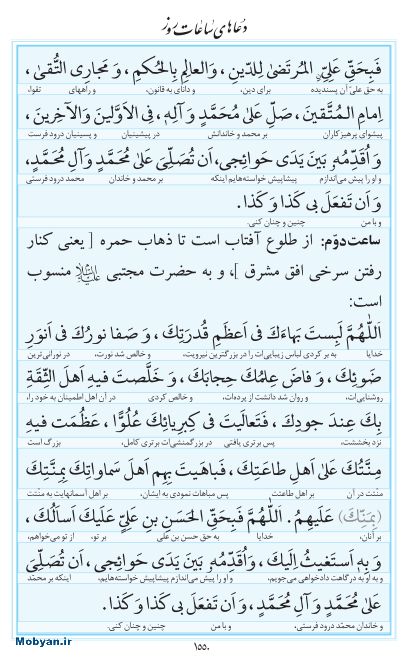 دعاهای ساعات روز
فَبِحَقِّ عَلِيٍّ المُرتَضىٰ لِلدّينِ، وَالعالِمِ بِالحُكمِ، وَ مَجارِى التُّقىٰ،
به حق علیّ آن پسندیده برای دین، و دانای به قانون، و راههای تقوا،
اِمامِ المُتَّقينَ، صَلِّ عَلىٰ مُحَمَّدٍ وَ آلِهِ، فِى الاَوَّلينَ وَالآخِرينَ،
پیشوای پرهیزکاران بر محمد و خاندانش در پیشینیان و پسینیان درود فرست
وَ اُقَدِّمُهُ بَينَ يَدَى حَوائِجى، اَن تُصَلِّىَ عَلىٰ مُحَمَّدٍ وَ آلِ مُحَمَّدٍ،
و او را پیش می‌اندازم پیشاپیش خواسته‌هایم اینکه بر محمد و خاندان محمد درود فرستی
وَ اَن تَفعَلَ بى كَذا وَ كَذا.
و با من چنین و چنان کنی.
ساعت دوّم: از طلوع آفتاب است تا ذهاب حمره [ یعنی کنار
رفتن سرخی افق مشرق ]، و به حضرت مجتبی علیه‌السلام منسوب
است:
اَللّٰهُمَّ لَبِستَ بَهاءَكَ فى اَعظَمِ قُدرَتِكَ، وَ صَفا نورُكَ فى اَنوَرِ
خدایا به بر کردی لباس زیبایی‌ات را در بزرگترین نیرویت، و خالص شد نورت، در نورانی‌ترین
ضَوئِكَ، وَ فاضَ عِلمُكَ حِجابَكَ، وَ خَلَّصتَ فيهِ اَهلَ الثِّقَةِ
روشنایی‌ات، و روان شد دانشت از پرده‌ات، و خالص کردی در آن اهل اطمینان به خود را،
بِكَ عِندَ جودِكَ، فَتَعالَيتَ فى كِبرِيائِكَ عُلُوًّا، عَظُمَت فيهِ
نزد بخششت، پس برتری یافتی در بزرگمنشی‌ات برتری کامل، بزرگ است
مِنَّتُكَ عَلىٰ اَهلِ طاعَتِكَ، فَباهَيتَ بِهِم اَهلَ سَماواتِكَ بِمِنَّتِكَ
منّتت در آن بر اهل طاعتت پس مباهات نمودی به ایشان، بر اهل آسمانهایت به منّتت
(بِمَنِّكَ) عَلَيهِم. اَللّٰهُمَّ فَبِحَقِّ الحَسَنِ بنِ عَلِيٍّ عَلَيكَ اَسأَلُكَ،
بر آنان، خدایا به حق حسن بن علی بر تو، از تو می‌خواهم،
وَ بِهِ اَستَغيثُ اِلَيكَ، وَ اُقَدِّمُهُ بَينَ يَدَى حَوائِجى، اَن تُصَلِّىَ
و به او به درگاهت دادخواهی می‌جویم، و او را پیش می‌اندازم پیشاپیش خواسته‌هایم، اینکه بر محمّد
عَلىٰ مُحَمَّدٍ وَ آلِ مُحَمَّدٍ، وَ اَن تَفعَلَ بى كَذا وَ كَذا.
و خاندان محمّد درود فرستی، و با من چنین و چنان کنی.
۱۵۵۰
Mobyan.ir